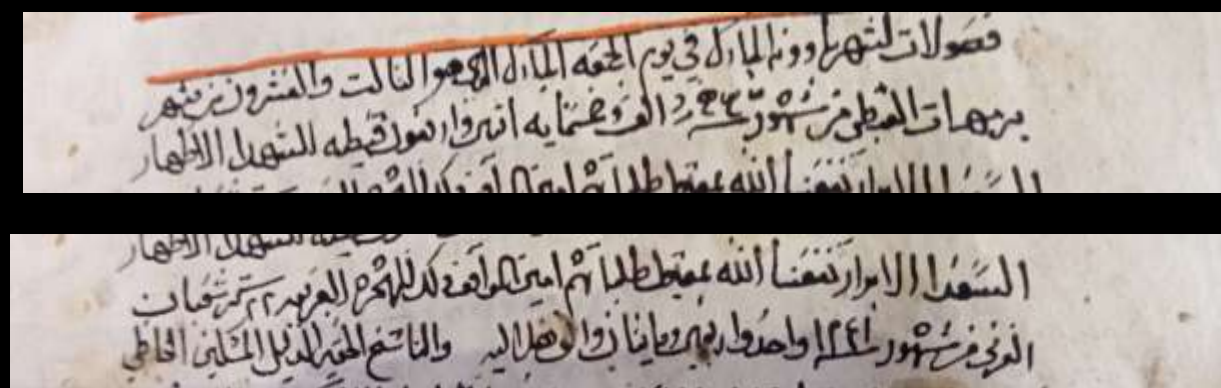 فصولات لشهر المبارك في يوم الجمعه المبارك الذي هو الثالت والعشرون من شهر
برمهات القبطي من شهور سنة الف وخمسمايه اتنين واربعون قبطيه للشهدا الاطهار
السعدا الابرار نفعنا الله طلباتهم امين الموافق ذلك للهجره العربيه شهر شعبان
من شهور سنة ١٢٤١ واحد واربعين ومايتان والف اليه والناسخ الحقير الذليل المسكين الخاطي